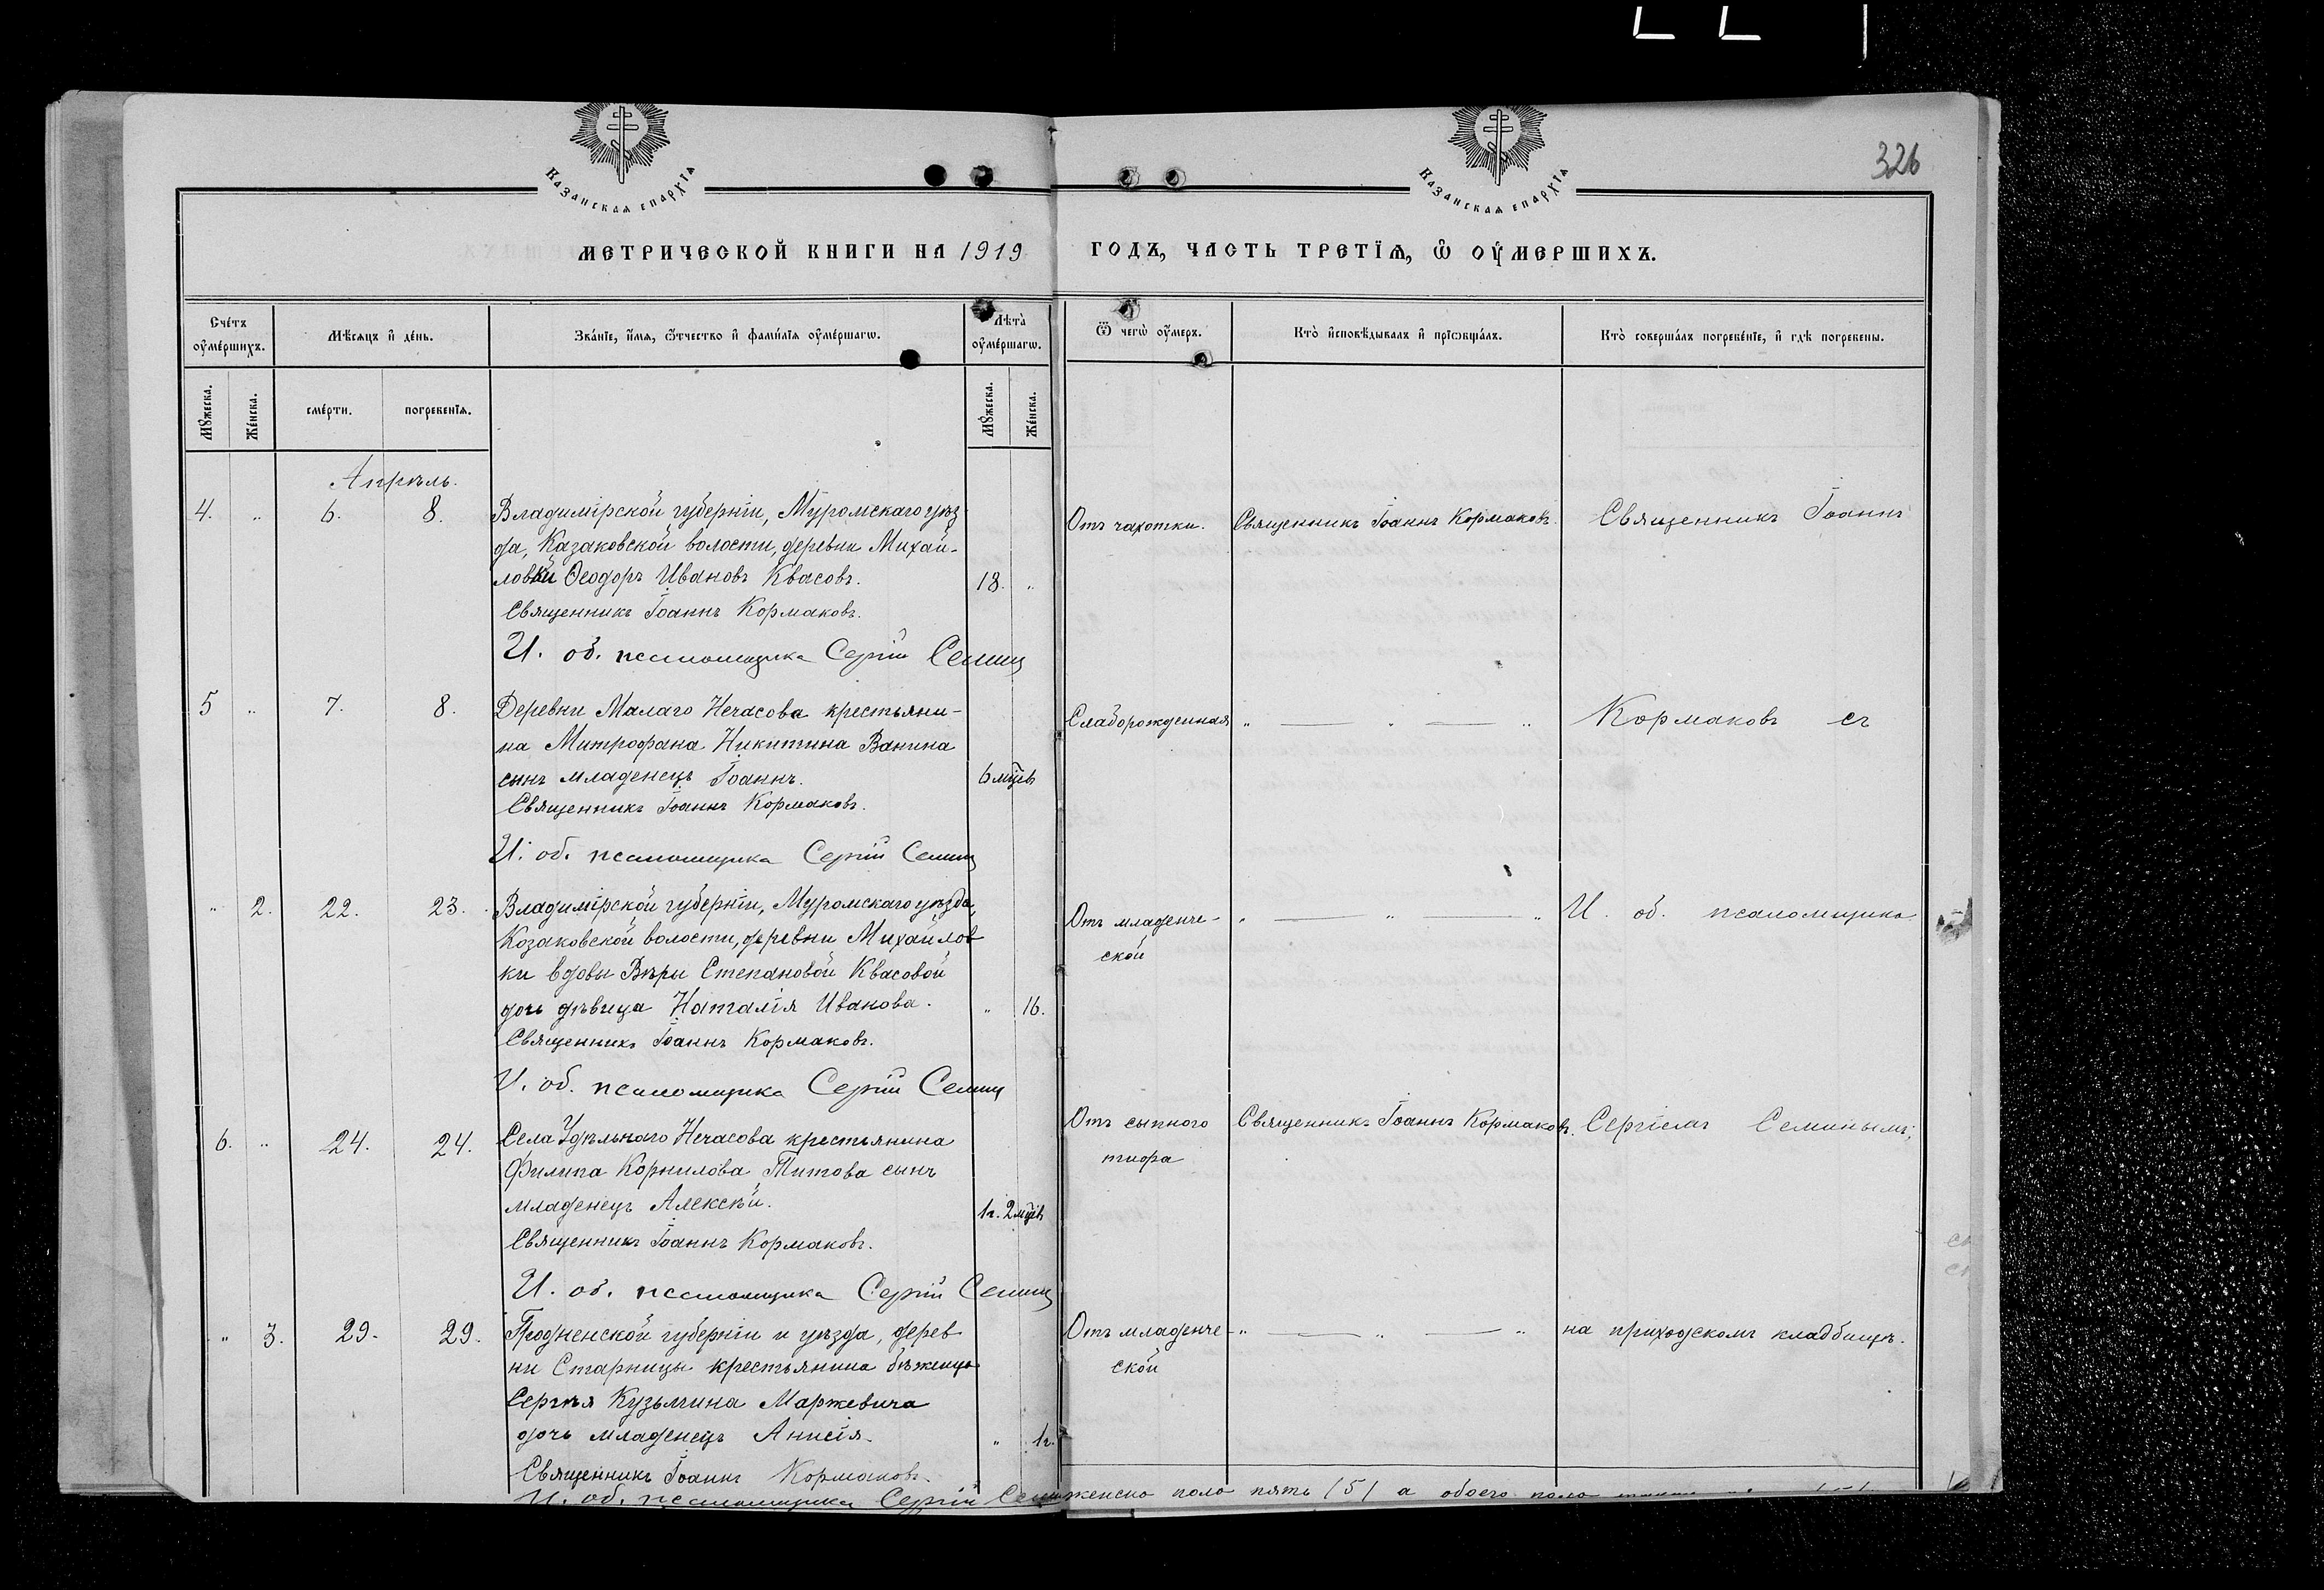 326
Казанская епархїя
Казанская епархїя
МЕТРИЧЕСКОЙ КНИГИ НА 1919
ГОДЪ, ЧАСТЬ ТРЕТЇѦ, Ѿ ОУМЕРШИХЪ.
Сче́тъ оу҆ме́ршихъ.
Мѣ́сѧцъ и҆ де́нь.
Зва́нїе, и҆́мѧ, ѻ҆́тчество и҆ фами́лїѧ оу҆ме́ршагѡ.
Лѣ́та оу҆ме́ршагѡ.
Ѿ чегѡ̀ оу҆́меръ.
Кто̀ и҆сповѣ́дывалъ и҆ прїѡбща́лъ.
Кто̀ соверша́лъ погребе́нїе, и҆ гдѣ̀ погребены.
Мꙋ́жеска.
Же́нска.
сме́рти.
погребе́нїѧ.
Мꙋ́жеска.
Же́нска.
Апрѣль.
4. „ 6. 8. Владимірской губерніи, Муромскаго уѣз-
да, Казаковской волости, деревни Михай-
ловки Ѳеодоръ Ивановъ Квасовъ. 18. „
Священникъ Іоаннъ Кормаковъ.
И. об. псаломщика Сергій Семин
Отъ чахотки. Священникъ Іоаннъ Кормаковъ. Священникъ Іоаннъ
5 „ 7. 8. Деревни Малаго Нечасова крестьяни-
на Митрофана Никитина Ванина
сынъ младенецъ Іоаннъ. 6 мцевъ
Священникъ Іоаннъ Кормаковъ.
И. об. псаломщика Сергій Семин
Слаборожденная „ „ „ Кормаковъ съ
„ 2. 22. 23. Владимірской губерніи, Муромскаго уѣзда,
Козаковской волости, деревни Михайлов
ки вдовы Вѣры Степановой Квасовой
дочь дѣвица Наталія Иванова. „ 16.
Священникъ Іоаннъ Кормаковъ.
И. об. псаломщика Сергій Семин
Отъ младенче- „ „ „ И. об. псаломщика
ской
6. „ 24. 24. Села Удѣльнаго Нечасова крестьянина
Филипа Корнилова Титова сынъ
младенецъ Алексѣй. 1 г. 2 мцевъ
Священникъ Іоаннъ Кормаковъ.
И. об. псаломщика Сергій Семин
Отъ сыпного Священникъ Іоаннъ Кормаковъ. Сергіемъ Семинымъ,
тифа
„ 3. 29. 29. Гродненской губерніи и уѣзда, дерев
ни Старницы крестьянина бѣженца
Сергѣя Кузьмина Маржевича
дочь младенецъ Анисія. „ 1 г.
Священникъ Іоаннъ Кормаковъ.
И. об. псаломщика Сергій
Отъ младенче- „ „ „ на приходскомъ кладбищѣ.
ской
женска пола пять (5) а обоего пола